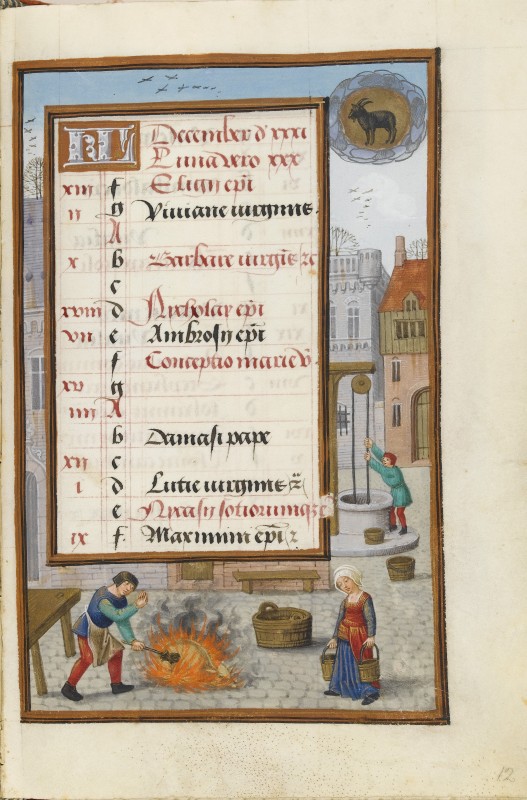 KL December d xxxi
Luna vero xxx
xiii f Eligii epi
ii g Viviane virginis.
A
x b Barbare virgis
c
xviii d Nicholay epi
vii e Ambrosii epi
f Conceptio marie v
xv g
iiii A
b Damasi pape
xii c
i d Lucie virginis
e Nycasii sociorumque
ix f Maximini epi
12